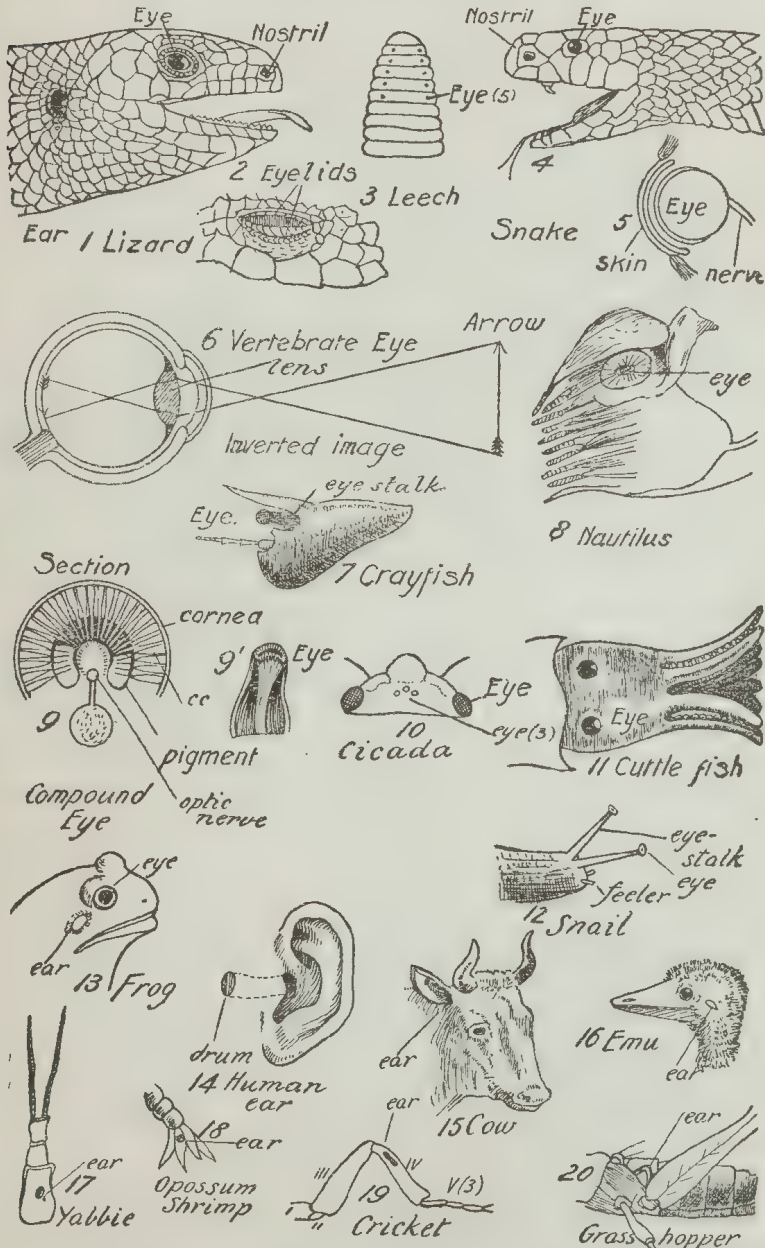 Eye
Nostril
Eye (5)
Nostril
Eye
2 Eyelids
3 Leech
4
Ear 1 Lizard
Snake
5
Eye
skin
nerve
6 Vertebrate Eye
lens
Arrow
Inverted image
eye
8 Nautilus
eye stalk.
Eye.
7 Crayfish
Section
cornea
9
cc
pigment
optic
nerve
Compound
Eye
9' Eye
Eye
eye(3)
10
Cicada
Eye
11 Cuttle fish
eye-
stalk
eye
feeler
12 Snail
eye
ear
13 Frog
drum
14 Human
ear
ear
15 Cow
16 Emu
ear
ear
17
Yabbie
18
ear
Opossum
Shrimp
ear
III
IV
V(3)
I
II
19
Cricket
ear
20
Grass hopper